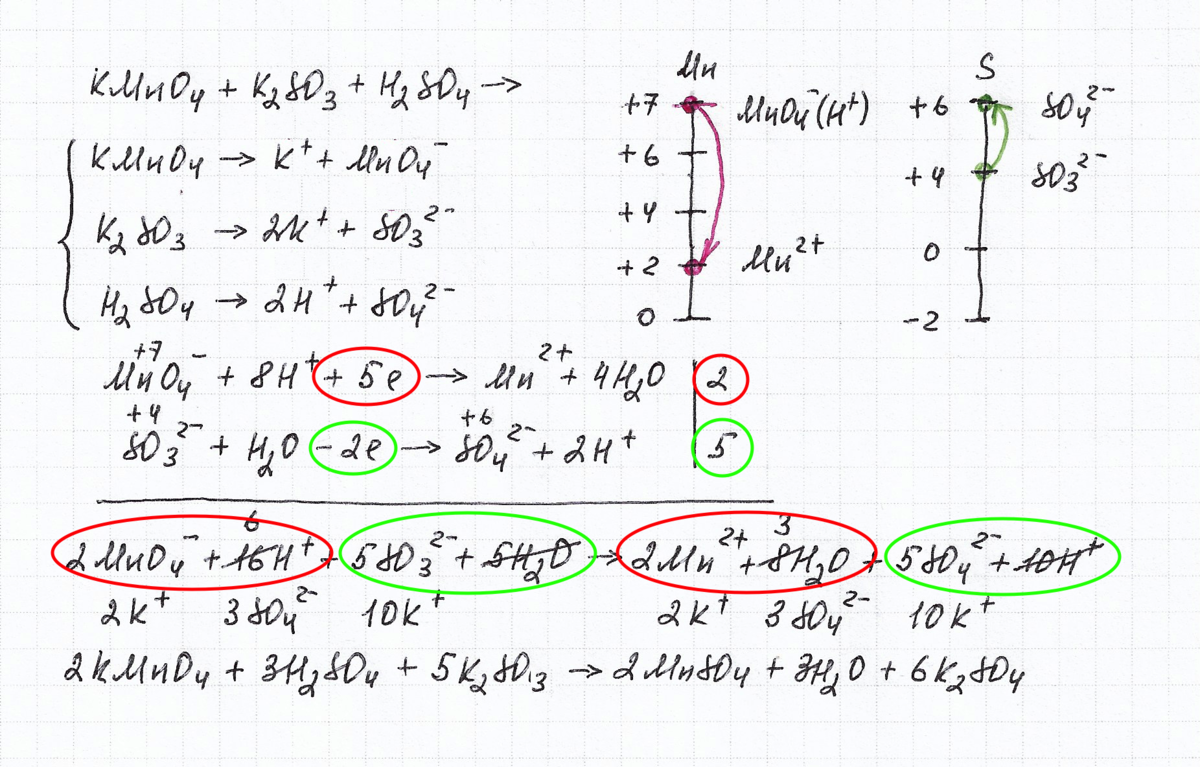 KMnO₄ + K₂SO₃ + H₂SO₄ →
KMnO₄ → K⁺ + MnO₄⁻
K₂SO₃ → 2K⁺ + SO₃²⁻
H₂SO₄ → 2H⁺ + SO₄²⁻
Mn
+7 MnO₄⁻(H⁺)
+6
+4
+2 Mn²⁺
0
S
+6 SO₄²⁻
+4 SO₃²⁻
0
-2
+7
MnO₄⁻ + 8H⁺ + 5e → Mn²⁺ + 4H₂O | 2
+4 +6
SO₃²⁻ + H₂O - 2e → SO₄²⁻ + 2H⁺ | 5
6 3
2MnO₄⁻ + 16H⁺ + 5SO₃²⁻ + 5H₂O → 2Mn²⁺ + 8H₂O + 5SO₄²⁻ + 10H⁺
2K⁺ 3SO₄²⁻ 10K⁺ 2K⁺ 3SO₄²⁻ 10K⁺
2KMnO₄ + 3H₂SO₄ + 5K₂SO₃ → 2MnSO₄ + 3H₂O + 6K₂SO₄